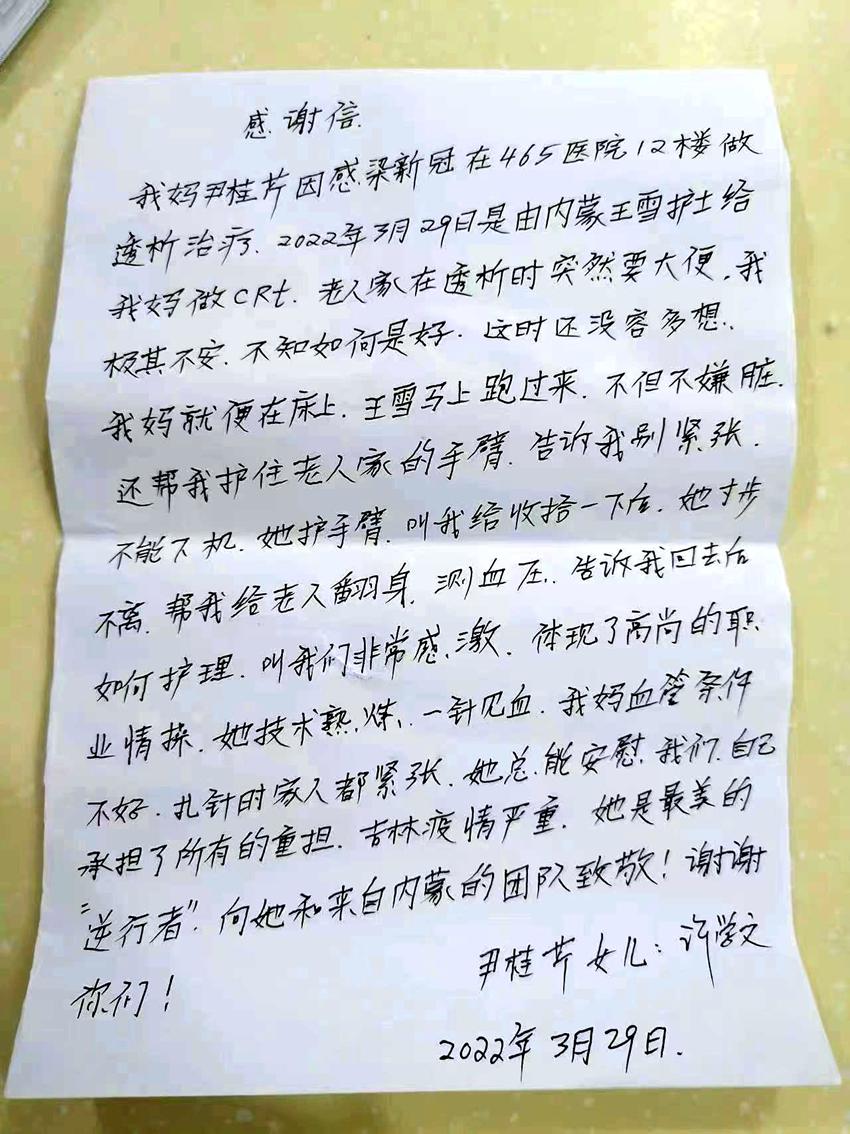 感谢信
我妈尹桂芹因感染新冠在465医院12楼做
透析治疗.2022年3月29日是由内蒙王雪护士给
我妈做CRt.老人家在透析时突然要大便.我
极其不安.不知如何是好.这时还没容多想.
我妈就便在床上.王雪马上跑过来.不但不嫌脏.
还帮我护住老人家的手臂.告诉我别紧张.
不能下机.她护手臂.叫我给收拾一下后.她寸步
不离.帮我给老人翻身.测血压.告诉我回去后
如何护理.叫我们非常感激.体现了高尚的职
业情操.她技术熟炼.一针见血.我妈血管条件
不好.扎针时家人都紧张.她总能安慰我们.自己
承担了所有的重担.吉林疫情严重.她是最美的
“逆行者”.向她和来自内蒙的团队致敬!谢谢
你们!
尹桂芹女儿:许学文
2022年3月29日.